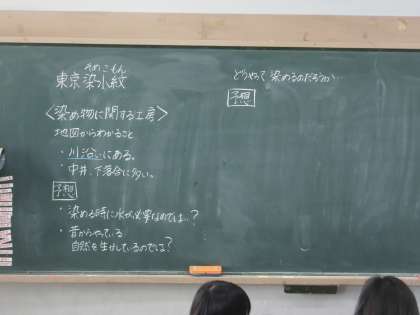 そめこもん
東京染小紋
〈染め物に関する工房〉
地図からわかること
・川沿いにある。
・中井、下落合に多い。
予想
・染める時に水が必要なのでは…?
・昔からやっている
自然を生かしているのでは?
どうやって染めるのだろうか…
予想